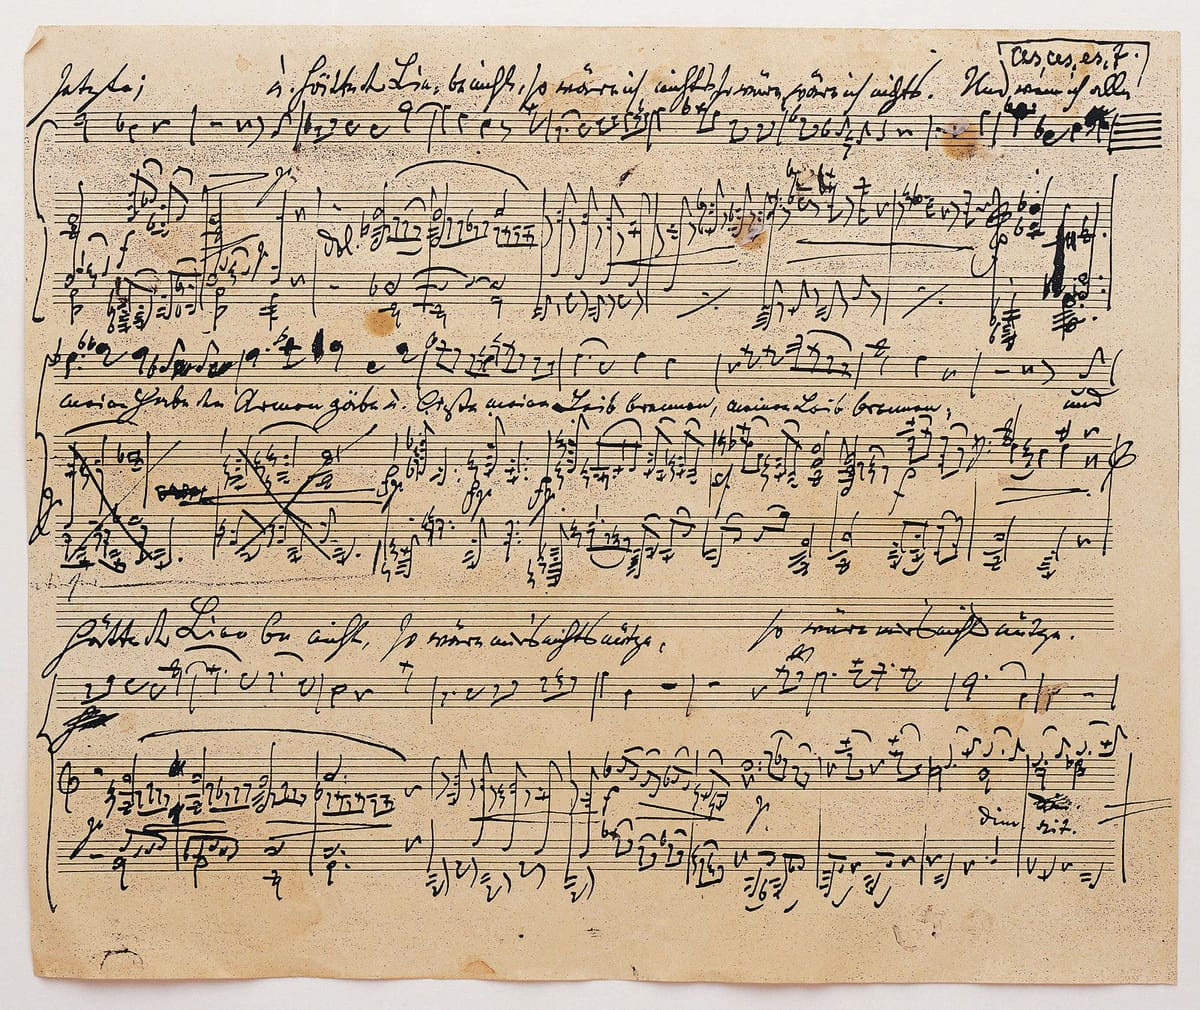 setzte; u. hätte der Liebe nicht, so wäre ich nichts, so wäre, wäre ich nichts. Und wenn ich alle
ces, ces, es, f.
f
dol.
meine Habe den Armen gäbe u. ließe meinen Leib brennen, meinen Leib brennen; und
f
hätte der Liebe nicht, so wäre mir's nichts nütze, so wäre mir's nichts nütze.
f
dim rit.